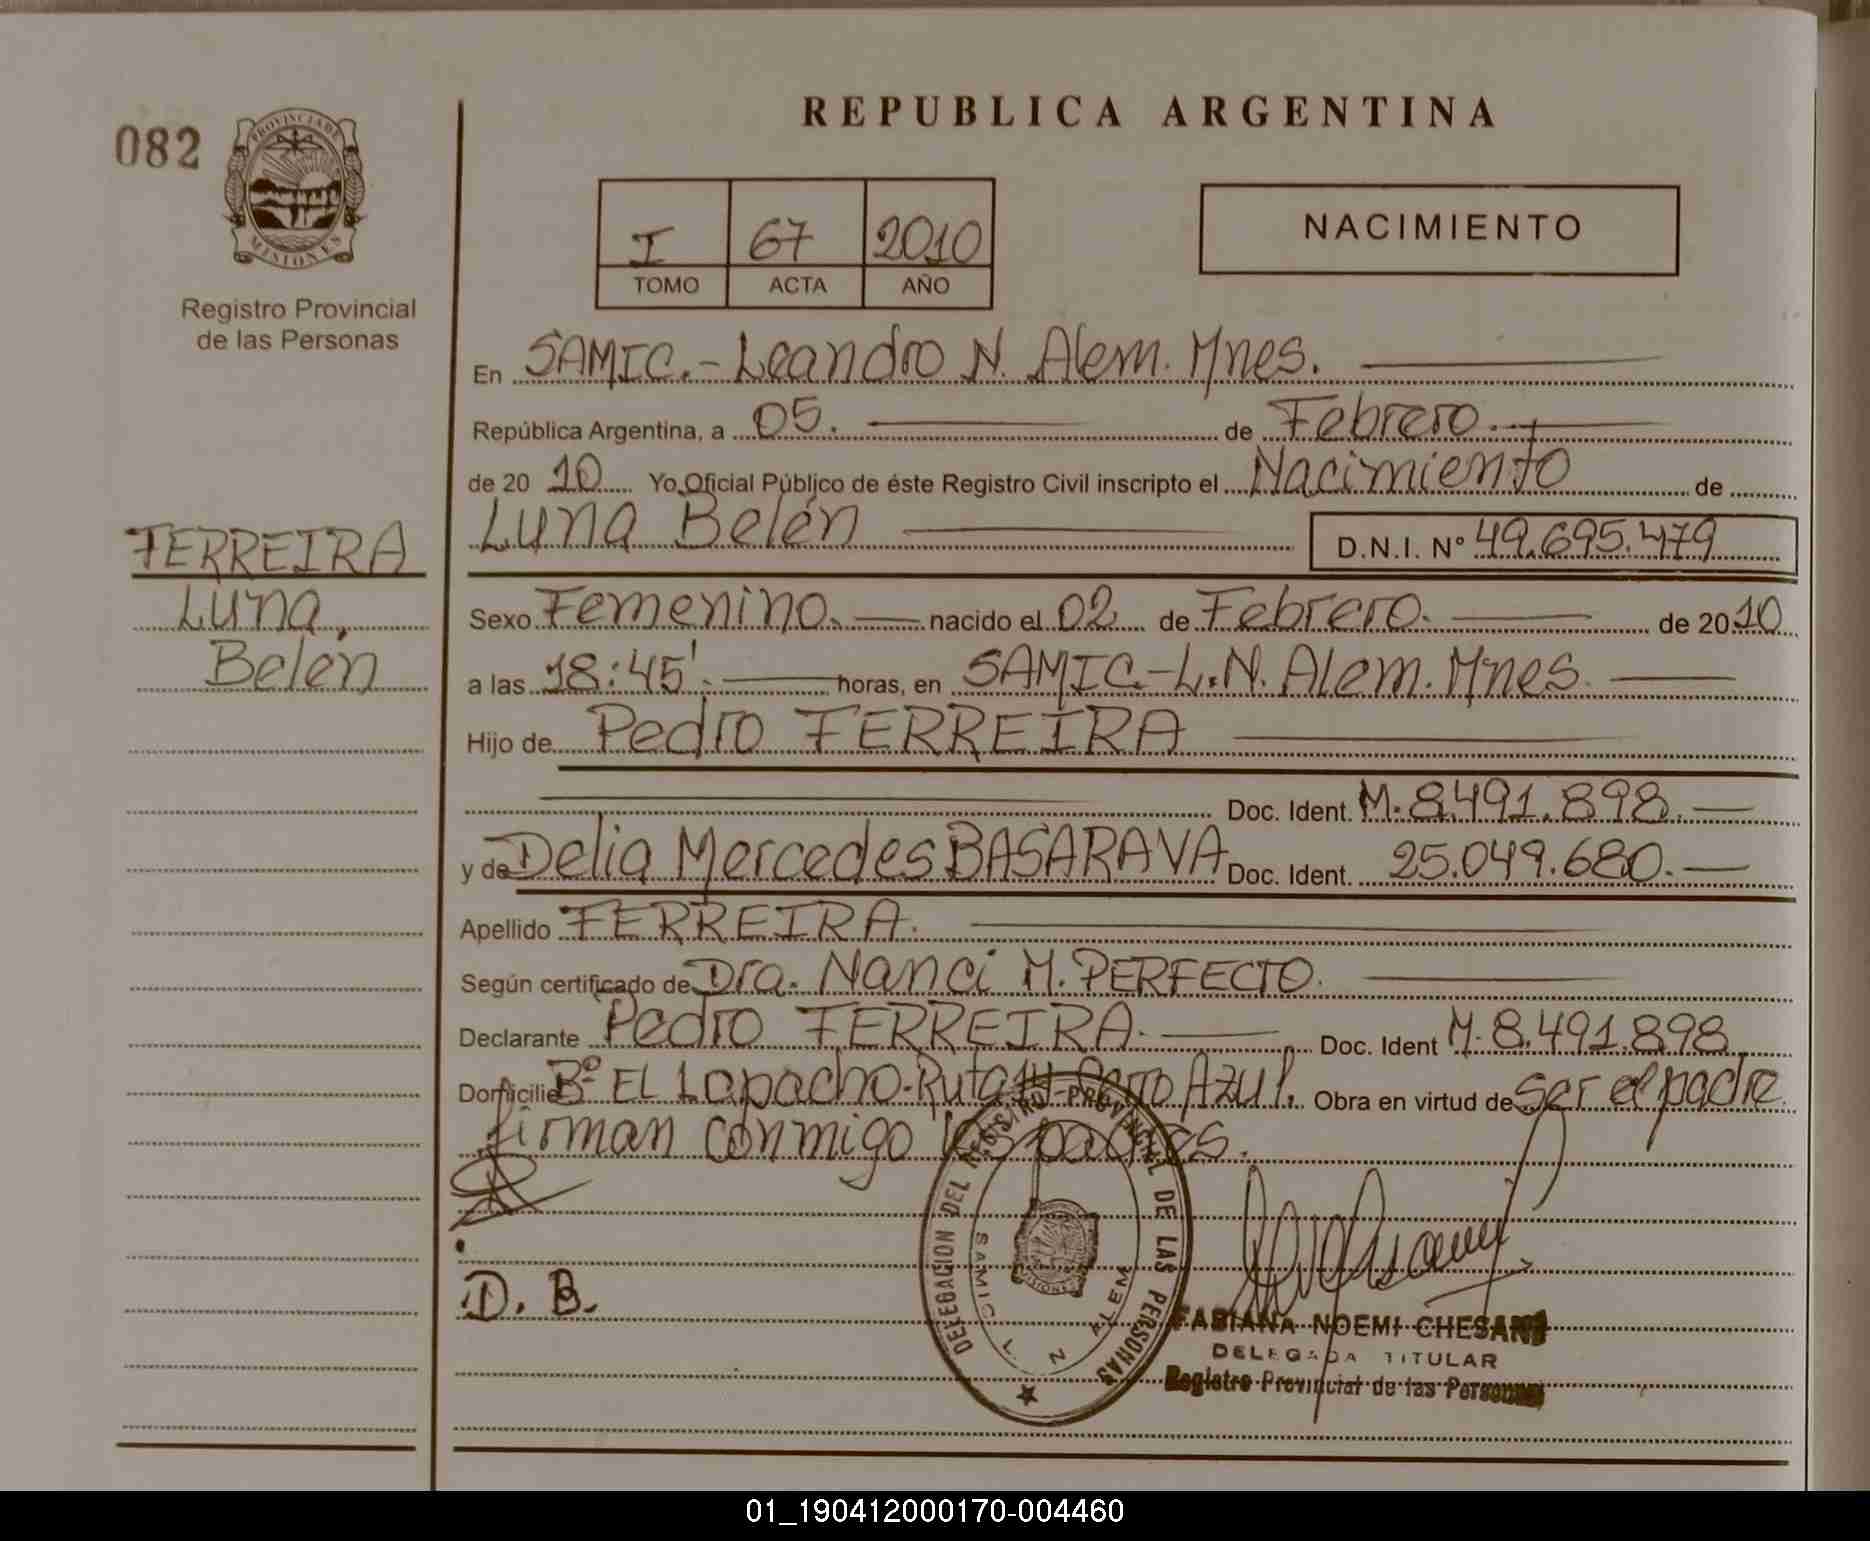 082
PROVINCIA DE
MISIONES
Registro Provincial
de las Personas
FERREIRA
Luna
Belén
REPUBLICA ARGENTINA
I 67 2010
TOMO ACTA AÑO
NACIMIENTO
En SAMIC.- Leandro N. Alem. Mnes.
República Argentina, a 05. de Febrero.
de 20 10 Yo Oficial Público de éste Registro Civil inscripto el Nacimiento de
Luna Belén D.N.I. Nº 49.695.479
Sexo Femenino. nacido el 02 de Febrero. de 20 10
a las 18:45'. horas, en SAMIC-L.N. Alem. Mnes.
Hijo de Pedro FERREIRA
Doc. Ident. M. 8.491.898.
y de Delia Mercedes BASARAVA Doc. Ident. 25.049.680.
Apellido FERREIRA.
Según certificado de Dra. Nanci M. PERFECTO.
Declarante Pedro FERREIRA. Doc. Ident M. 8.491.898
Domicilio Bº EL Lapacho-Ruta 14-Cerro Azul. Obra en virtud de ser el padre
firman conmigo los padres.
D. B.
DELEGACION DEL REGISTRO PROVINCIAL DE LAS PERSONAS
SAMIC L. N ALEM
FABIANA NOEMI CHESANI
DELEGADA TITULAR
Registro Provincial de las Personas
01_190412000170-004460